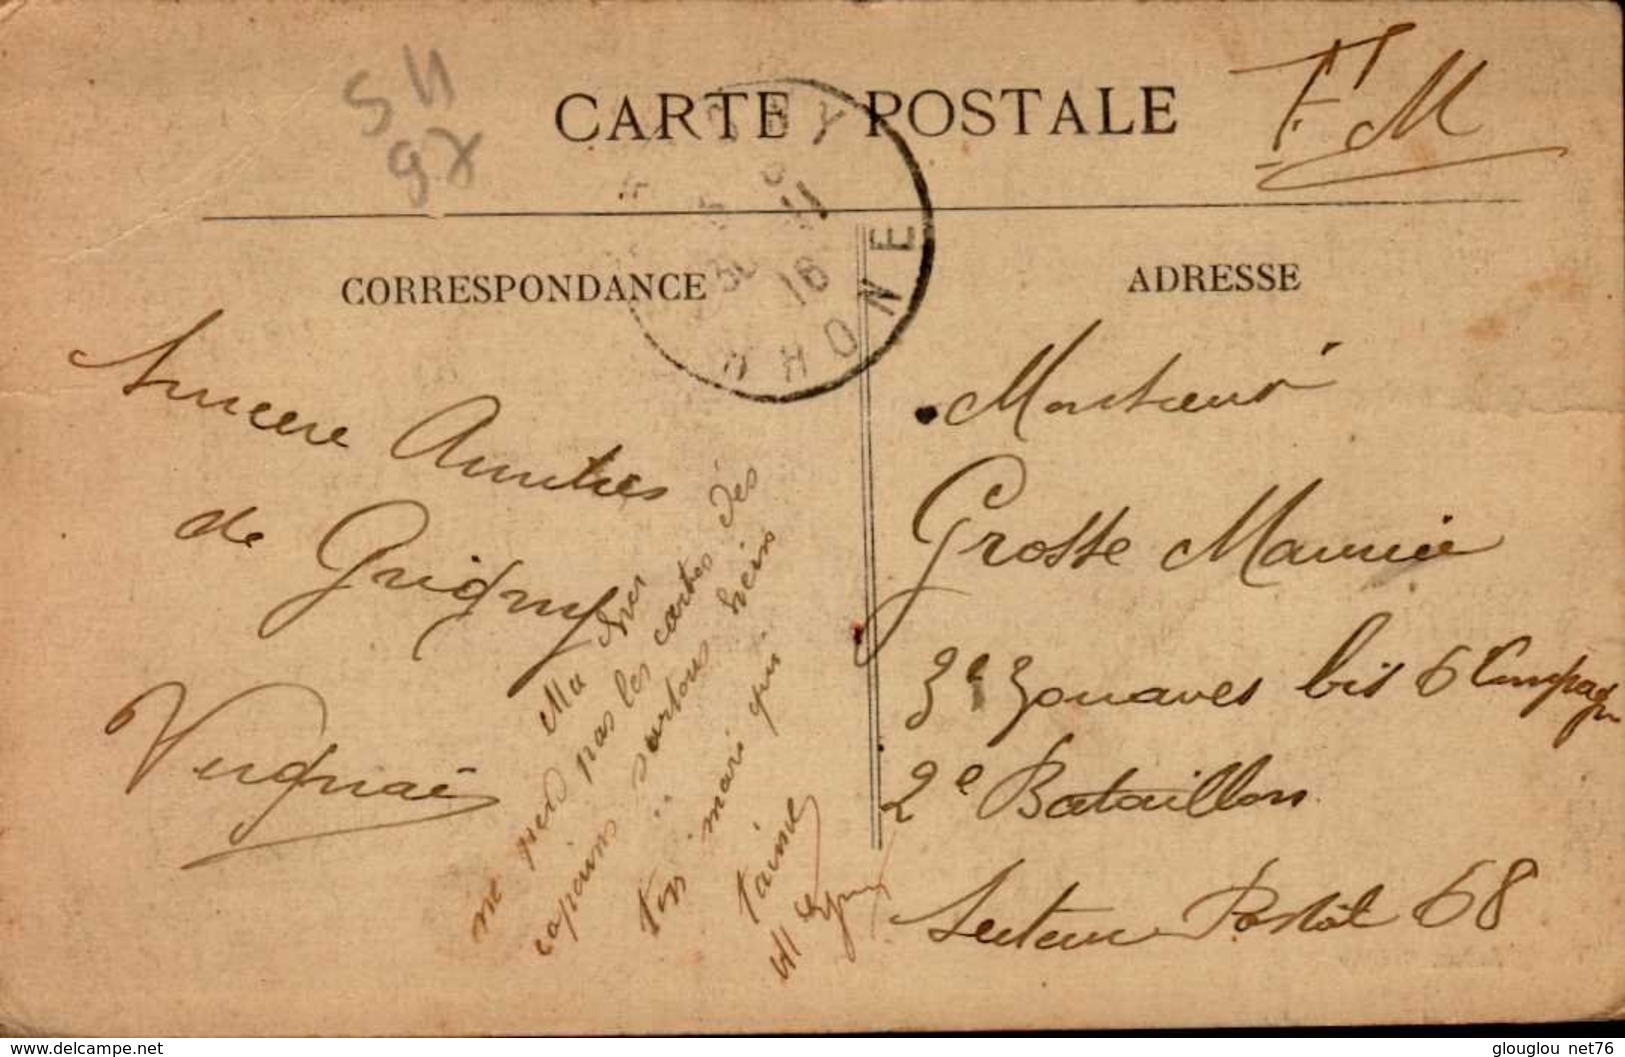 SH
97
CARTE POSTALE
F.M
RHONE
30 11
16
CORRESPONDANCE
ADRESSE
Sincère Amitiés
de Grigny
Ma
me perd pas les cartes dés
copains surtous
ton mari qui
t'aime
Monsieur
Grosse Maurice
3e Zouaves bis 6 Compag
2e Bataillon
Secteur Postal 68
www.delcampe.net
glouglou_net76